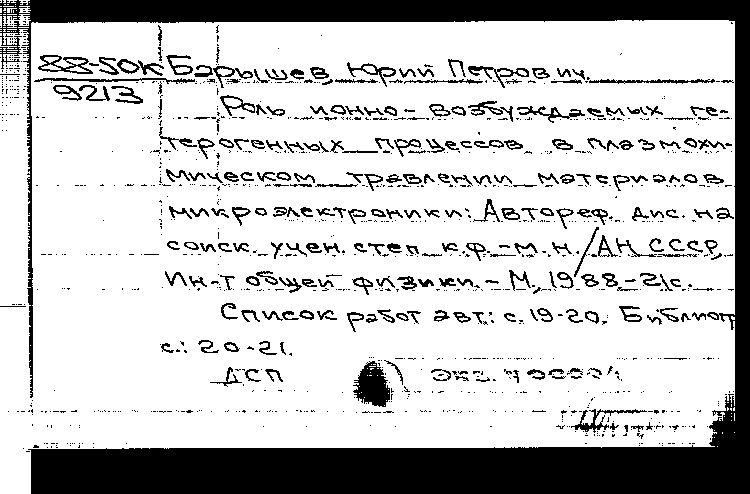 88-50К Барышев, Юрий Петрович.
9213
Роль ионно-возбуждаемых ге-
терогенных процессов в плазмохи-
мическом травлении материалов
микроэлектроники: Автореф. дис. на
соиск. учен. степ. к.ф.-м.н. / АН СССР,
Ин-т общей физики. - М, 1988 - 21с.
Список работ авт.: с. 19-20. Библиогр
с.: 20-21.
ДСП экз.